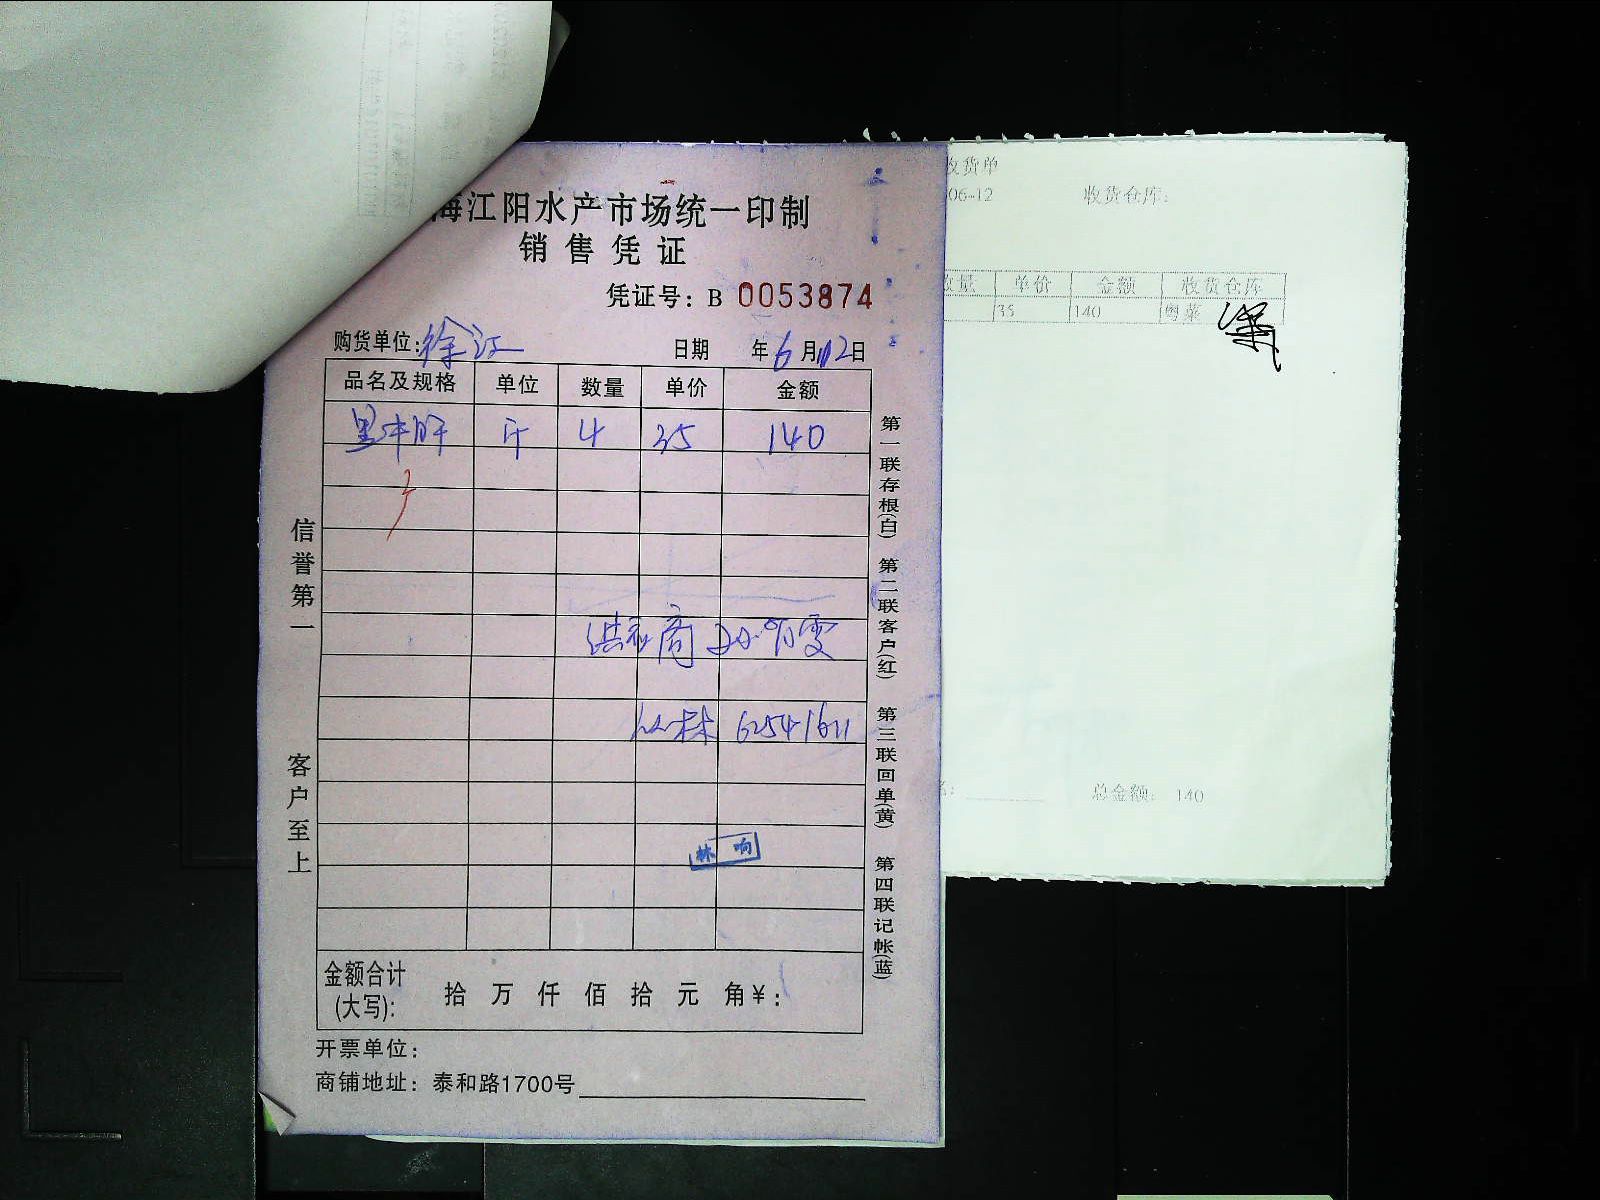 海江阳水产市场统一印制
销售凭证
凭证号：B 0053874
购货单位：徐江
日期 年6月12日
品名及规格 单位 数量 单价 金额
斤 4 35 140
供应商
丛林 62541611
林响
金额合计(大写)： 拾 万 仟 佰 拾 元 角￥：
开票单位：
商铺地址：泰和路1700号
信誉第一
客户至上
第一联存根(白)
第二联客户(红)
第三联回单(黄)
第四联记帐(蓝)
收货单
06-12 收货仓库：
数量 单价 金额 收货仓库
35 140 粤菜
总金额： 140